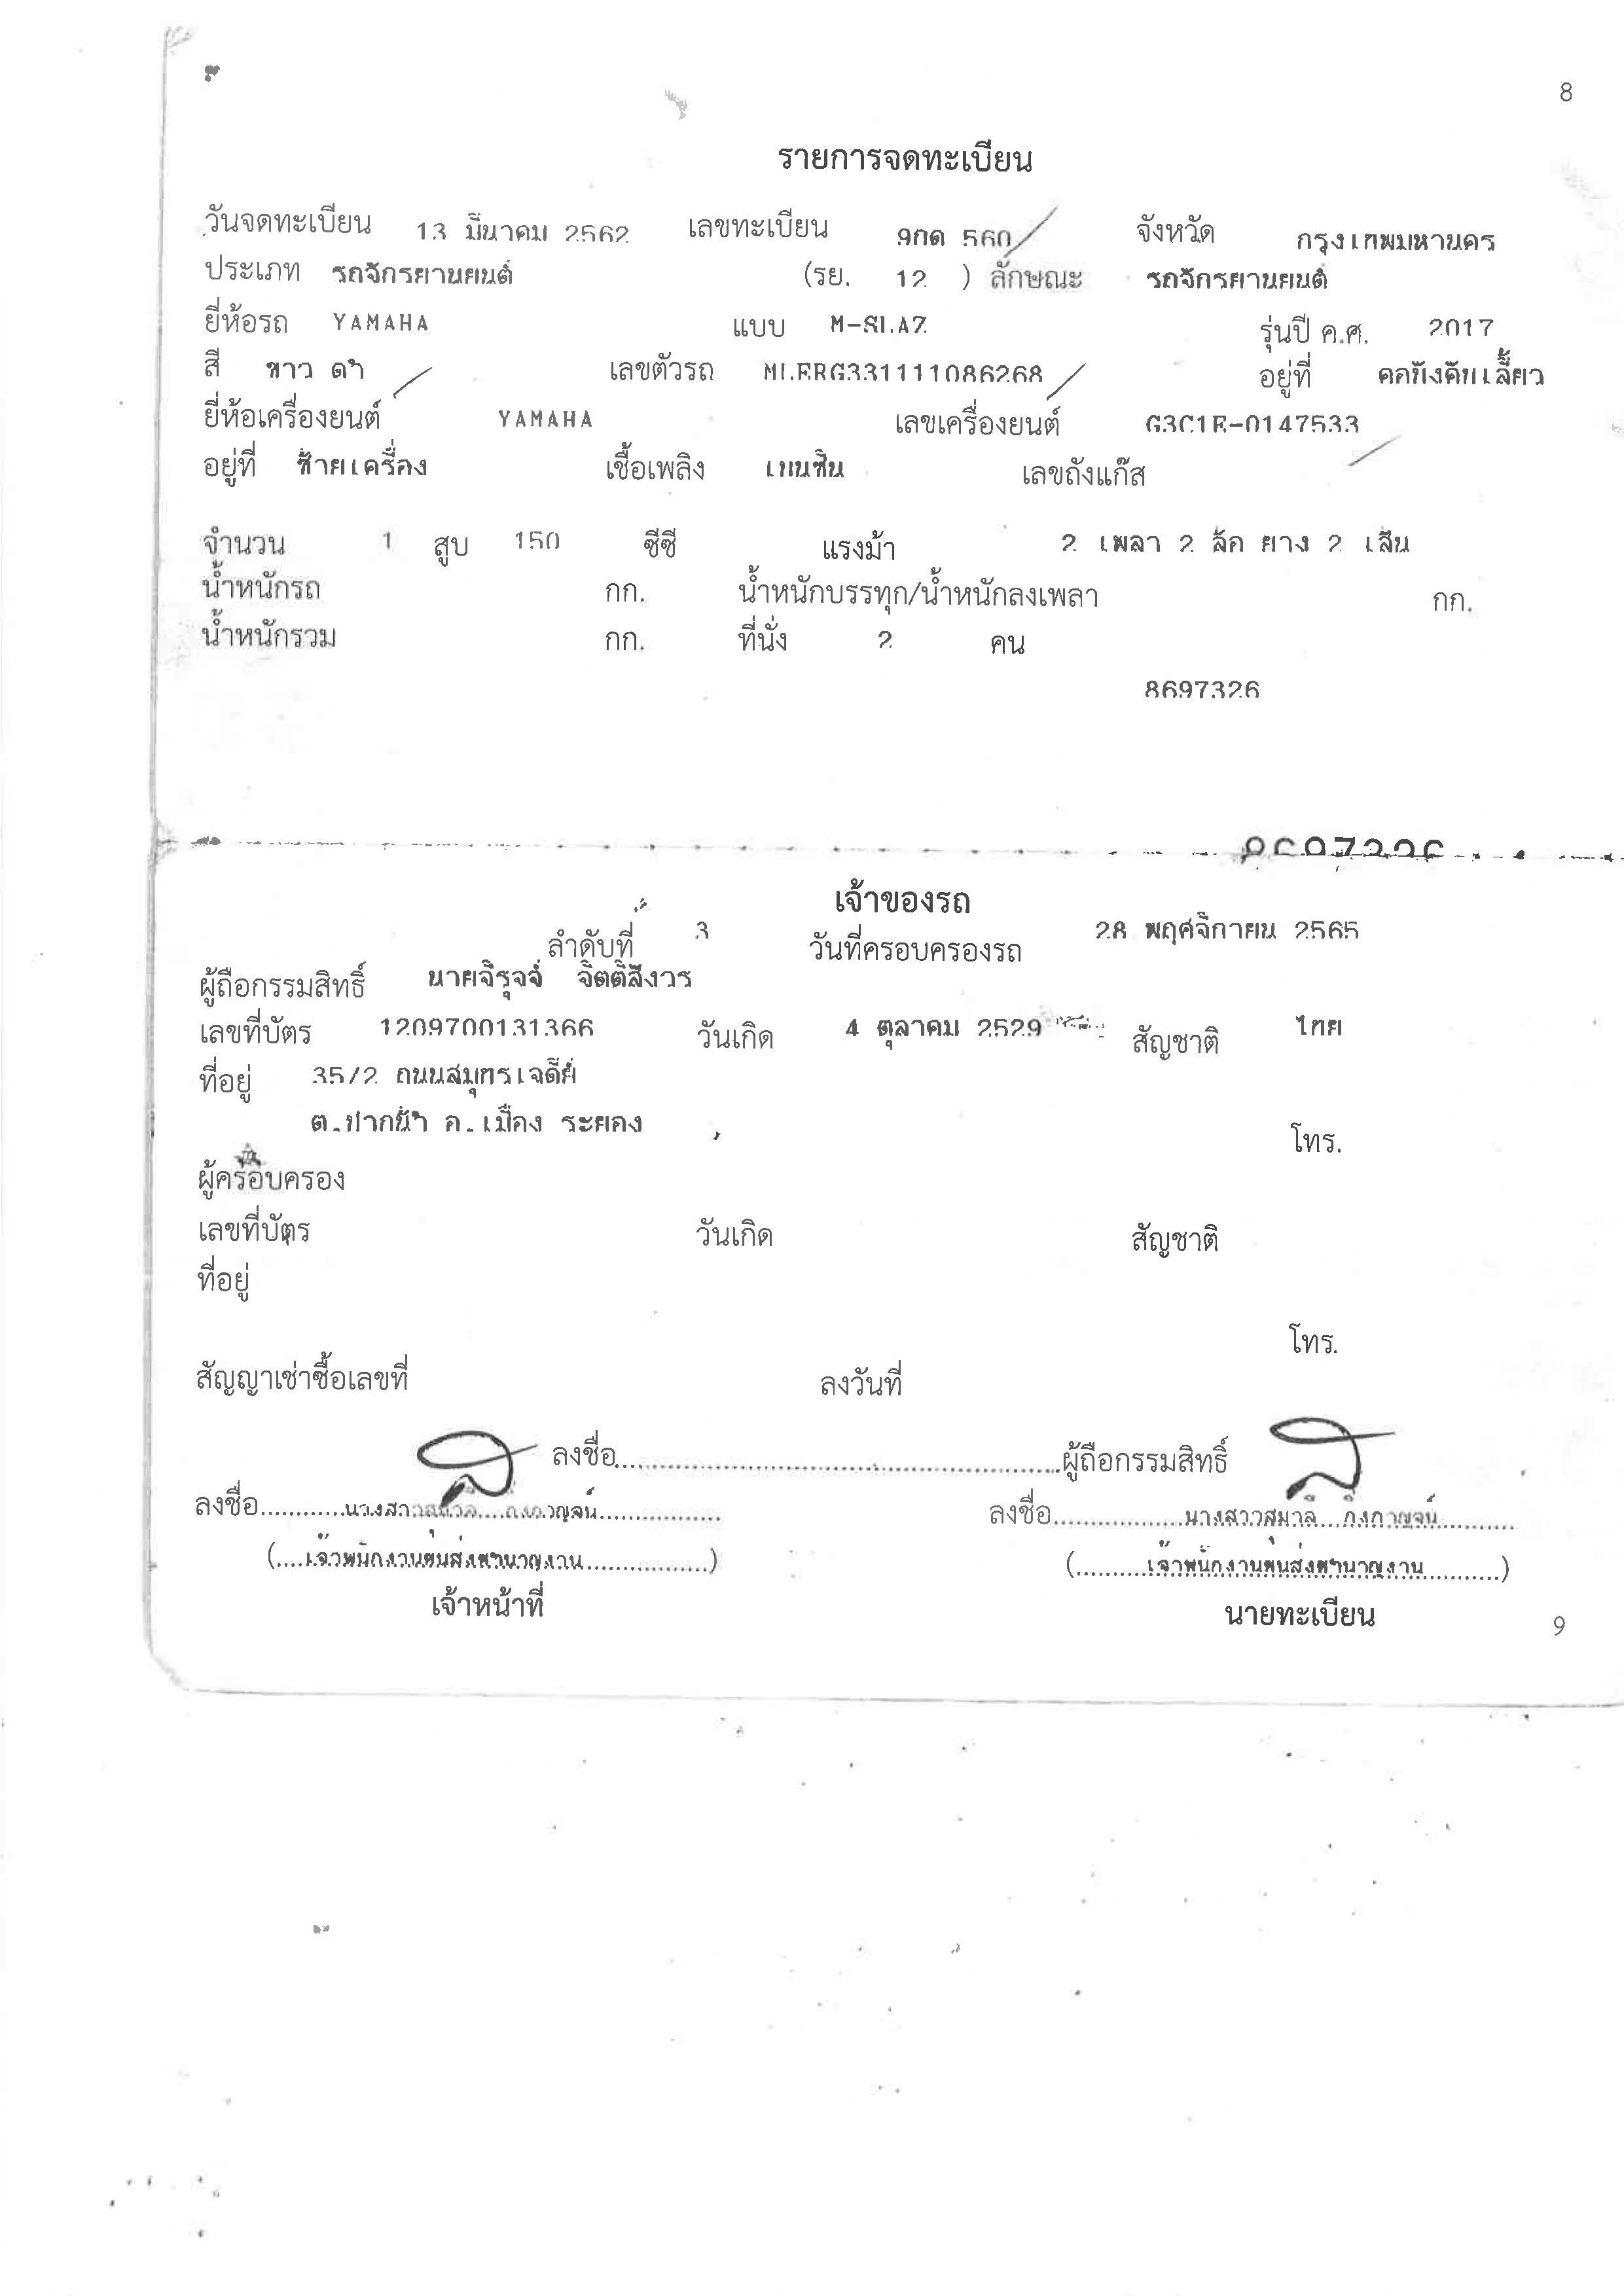 8
รายการจดทะเบียน
วันจดทะเบียน 13 มีนาคม 2562 เลขทะเบียน 9กด 560 จังหวัด กรุงเทพมหานคร
ประเภท รถจักรยานยนต์ (รย. 12 ) ลักษณะ รถจักรยานยนต์
ยี่ห้อรถ YAMAHA แบบ M-SLAZ รุ่นปี ค.ศ. 2017
สี ขาว ดำ เลขตัวรถ MLERG331111086268 อยู่ที่ คอบังคับเลี้ยว
ยี่ห้อเครื่องยนต์ YAMAHA เลขเครื่องยนต์ G3C1E-0147533
อยู่ที่ ซ้ายเครื่อง เชื้อเพลิง เบนซิน เลขถังแก๊ส
จำนวน 1 สูบ 150 ซีซี แรงม้า 2 เพลา 2 ล้อ ยาง 2 เส้น
น้ำหนักรถ กก. น้ำหนักบรรทุก/น้ำหนักลงเพลา กก.
น้ำหนักรวม กก. ที่นั่ง 2 คน
8697326
8697326
เจ้าของรถ
ลำดับที่ 3 วันที่ครอบครองรถ 28 พฤศจิกายน 2565
ผู้ถือกรรมสิทธิ์ นายจิรุจจ์ จิตติสังวร
เลขที่บัตร 1209700131366 วันเกิด 4 ตุลาคม 2529 สัญชาติ ไทย
ที่อยู่ 35/2 ถนนสมุทรเจดีย์
ต.ปากน้ำ อ.เมือง ระยอง โทร.
ผู้ครอบครอง
เลขที่บัตร วันเกิด สัญชาติ
ที่อยู่
โทร.
สัญญาเช่าซื้อเลขที่ ลงวันที่
ลงชื่อ ผู้ถือกรรมสิทธิ์
ลงชื่อ นางสาวสุมาลี กิ่งกาญจน์ ลงชื่อ นางสาวสุมาลี กิ่งกาญจน์
(....เจ้าพนักงานขนส่งชำนาญงาน....) (....เจ้าพนักงานขนส่งชำนาญงาน....)
เจ้าหน้าที่ นายทะเบียน
9